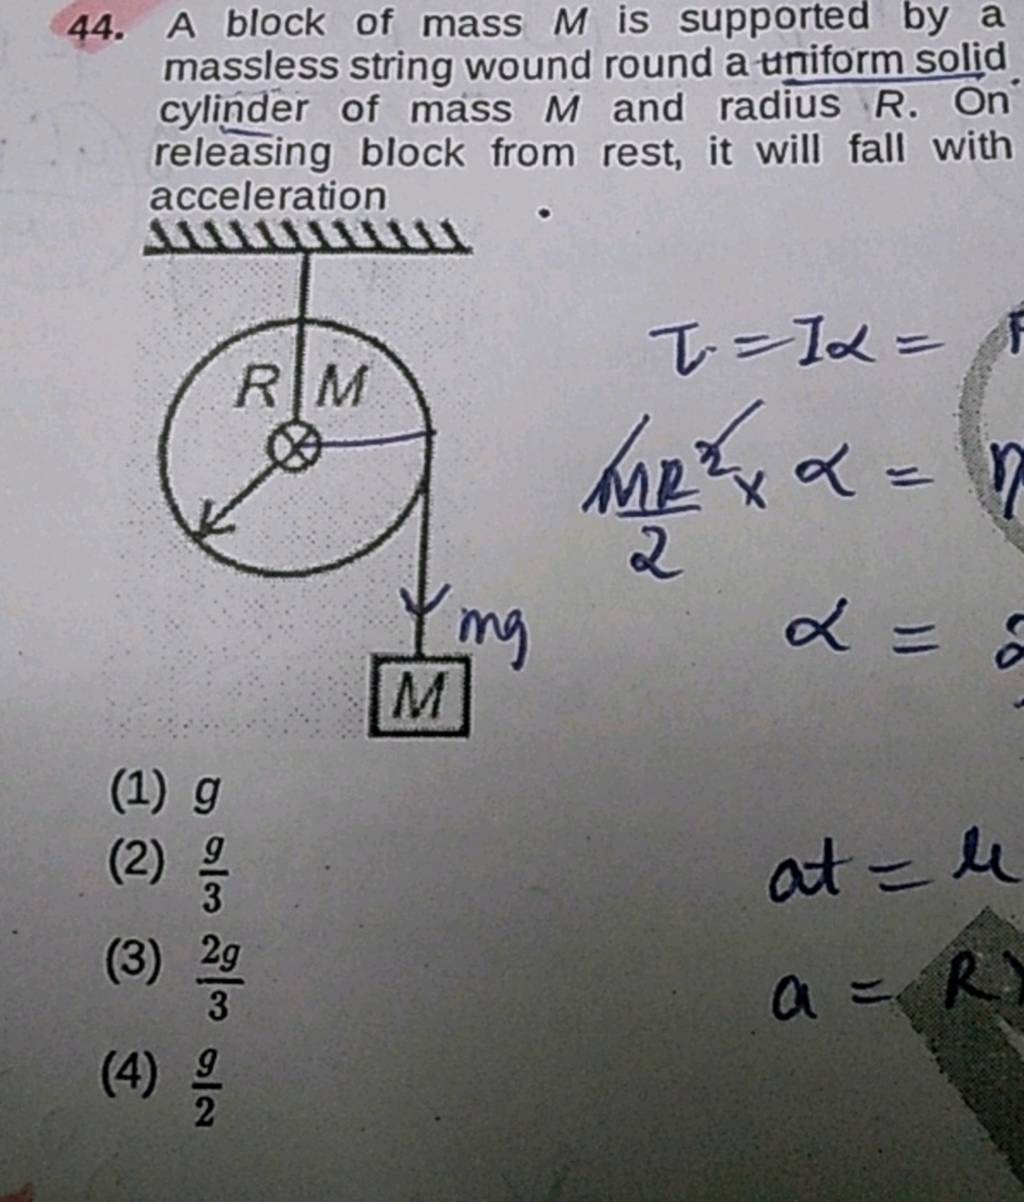 44. A block of mass M is supported by a
massless string wound round a uniform solid
cylinder of mass M and radius R. On
releasing block from rest, it will fall with
acceleration
R M
mg
M
τ = Iα =
MR²/2 × α =
α = 2
at =
a = R
(1) g
(2) g/3
(3) 2g/3
(4) g/2